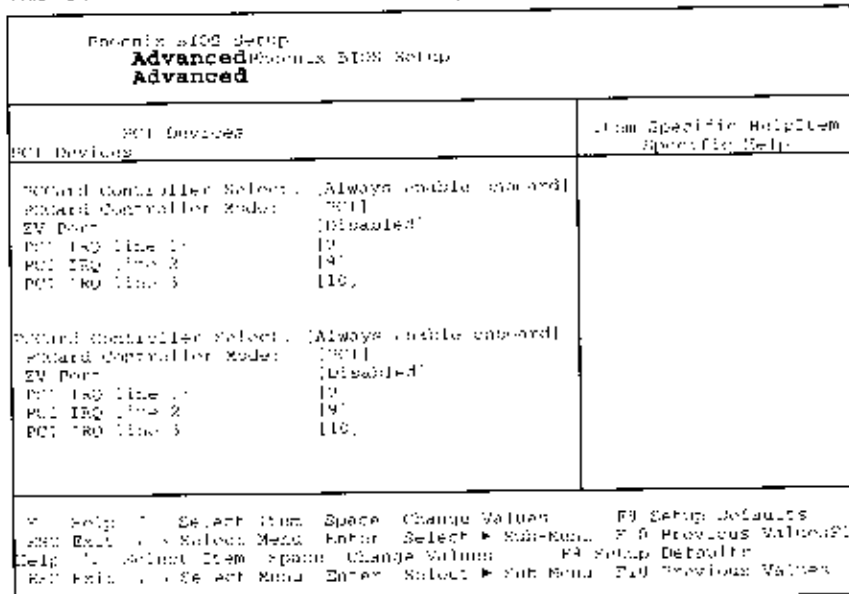 Phoenix BIOS Setup
AdvancedPhoenix BIOS Setup
Advanced
PCI Devices
PCI Devices
Item Specific HelpItem
Specific Help
PCCard Controller Select: [Always enable onboard]
PCCard Controller Mode: [PCI]
ZV Port [Disabled]
PCI IRQ line 1: [9
PCI IRQ line 2 [9]
PCI IRQ line 3 [10]
PCCard Controller Select: [Always enable onboard]
PCCard Controller Mode: [PCI]
ZV Port [Disabled]
PCI IRQ line 1: [9
PCI IRQ line 2 [9]
PCI IRQ line 3 [10]
Help Select Item Space Change Values F9 Setup Defaults
ESC Exit Select Menu Enter Select ► Sub-Menu F10 Previous Values
Help Select Item Space Change Values F9 Setup Defaults
ESC Exit Select Menu Enter Select ► Sub Menu F10 Previous Values